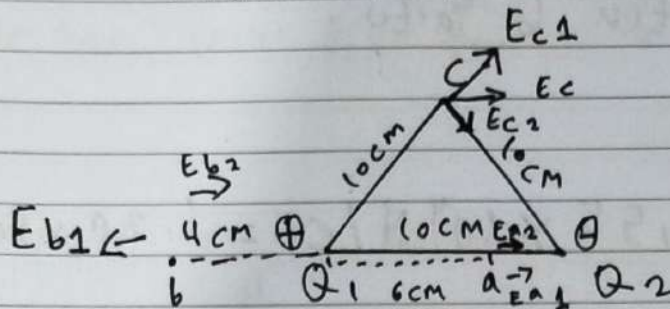 Ec1
C
Ec
Ec2
10cm
10 cM
Eb2
Eb1 ← 4 cm ⊕ 10cM Ea2 ⊖
b Q1 6cm a Ea1 Q2